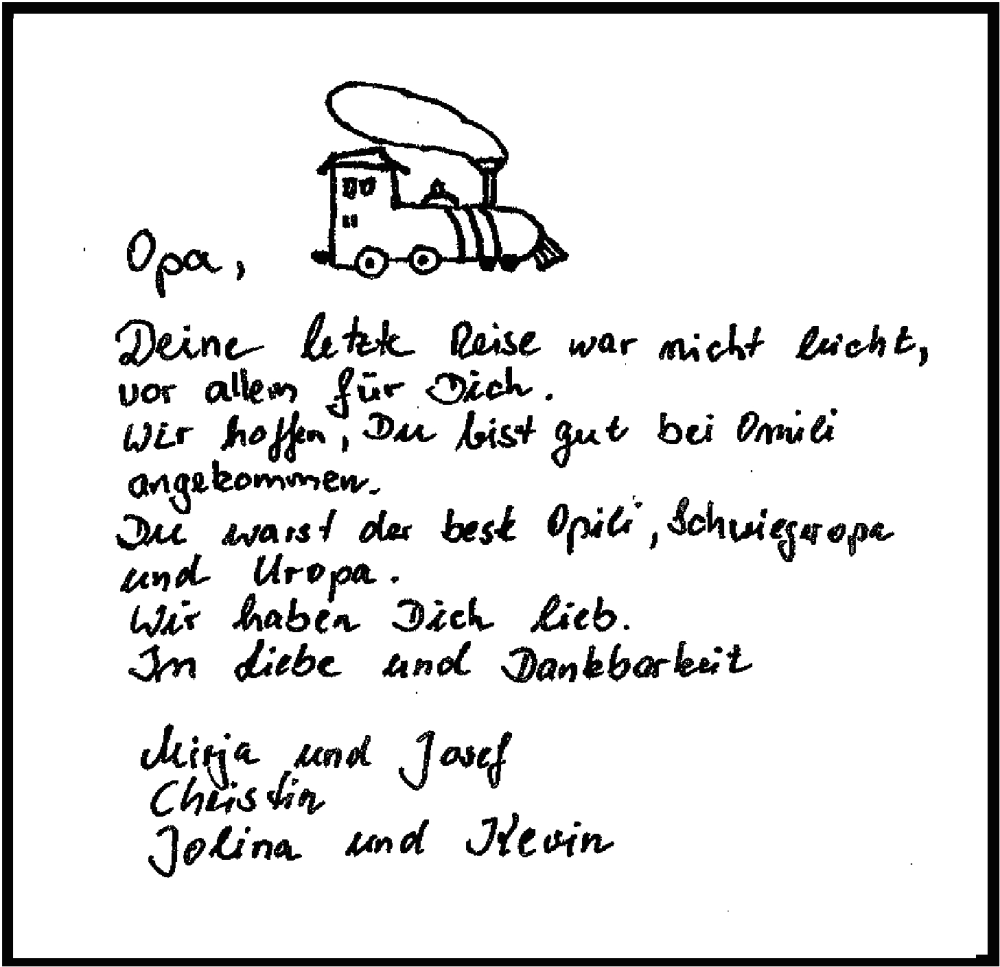 Opa,
Deine letzte Reise war nicht leicht,
vor allem für Dich.
Wir hoffen, Du bist gut bei Omili
angekommen.
Du warst der beste Opili, Schwiegeropa
und Uropa.
Wir haben Dich lieb.
In Liebe und Dankbarkeit
Mirja und Josef
Christin
Jolina und Kevin